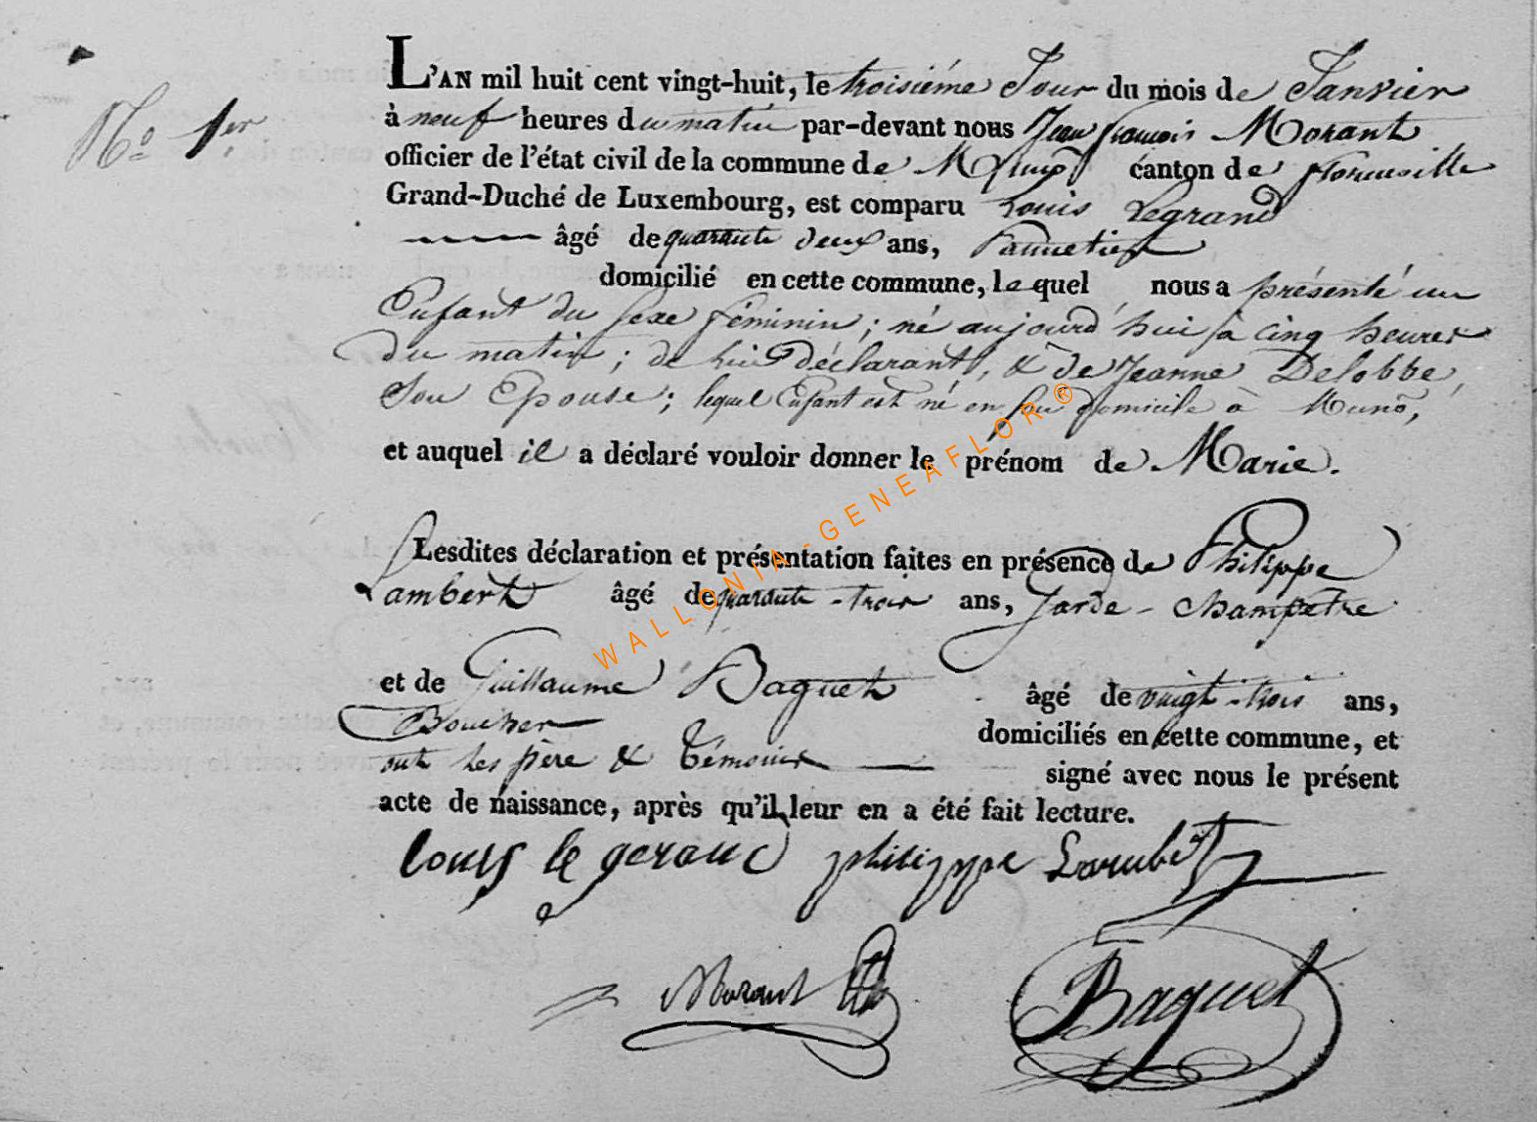 N.o 1.er
L'AN mil huit cent vingt-huit, le troisiéme Jour du mois de Janvier
à neuf heures du matin par-devant nous Jean françois Morant
officier de l'état civil de la commune de canton de florenville
Grand-Duché de Luxembourg, est comparu Louis Legrand
âgé de quarante deux ans, Pannetier
domicilié en cette commune, lequel nous a présenté un
Enfant du sexe féminin; né aujourd'hui à cinq heures
du matin; de lui déclarant, & de Jeanne Delobbe,
Son Epouse; lequel Enfant est né en son domicile à Muno,
et auquel il a déclaré vouloir donner le prénom de Marie.
Lesdites déclaration et présentation faites en présence de Philippe
Lambert âgé de quarante-trois ans, Garde-Champetre
et de Guillaume Baquet âgé de vingt-trois ans,
Boucher domiciliés en cette commune, et
ont les père & témoins signé avec nous le présent
acte de naissance, après qu'il leur en a été fait lecture.
louis le gerand philippe Lambert
Morant Baquet
WALLONIA-GENEAFLOR ®